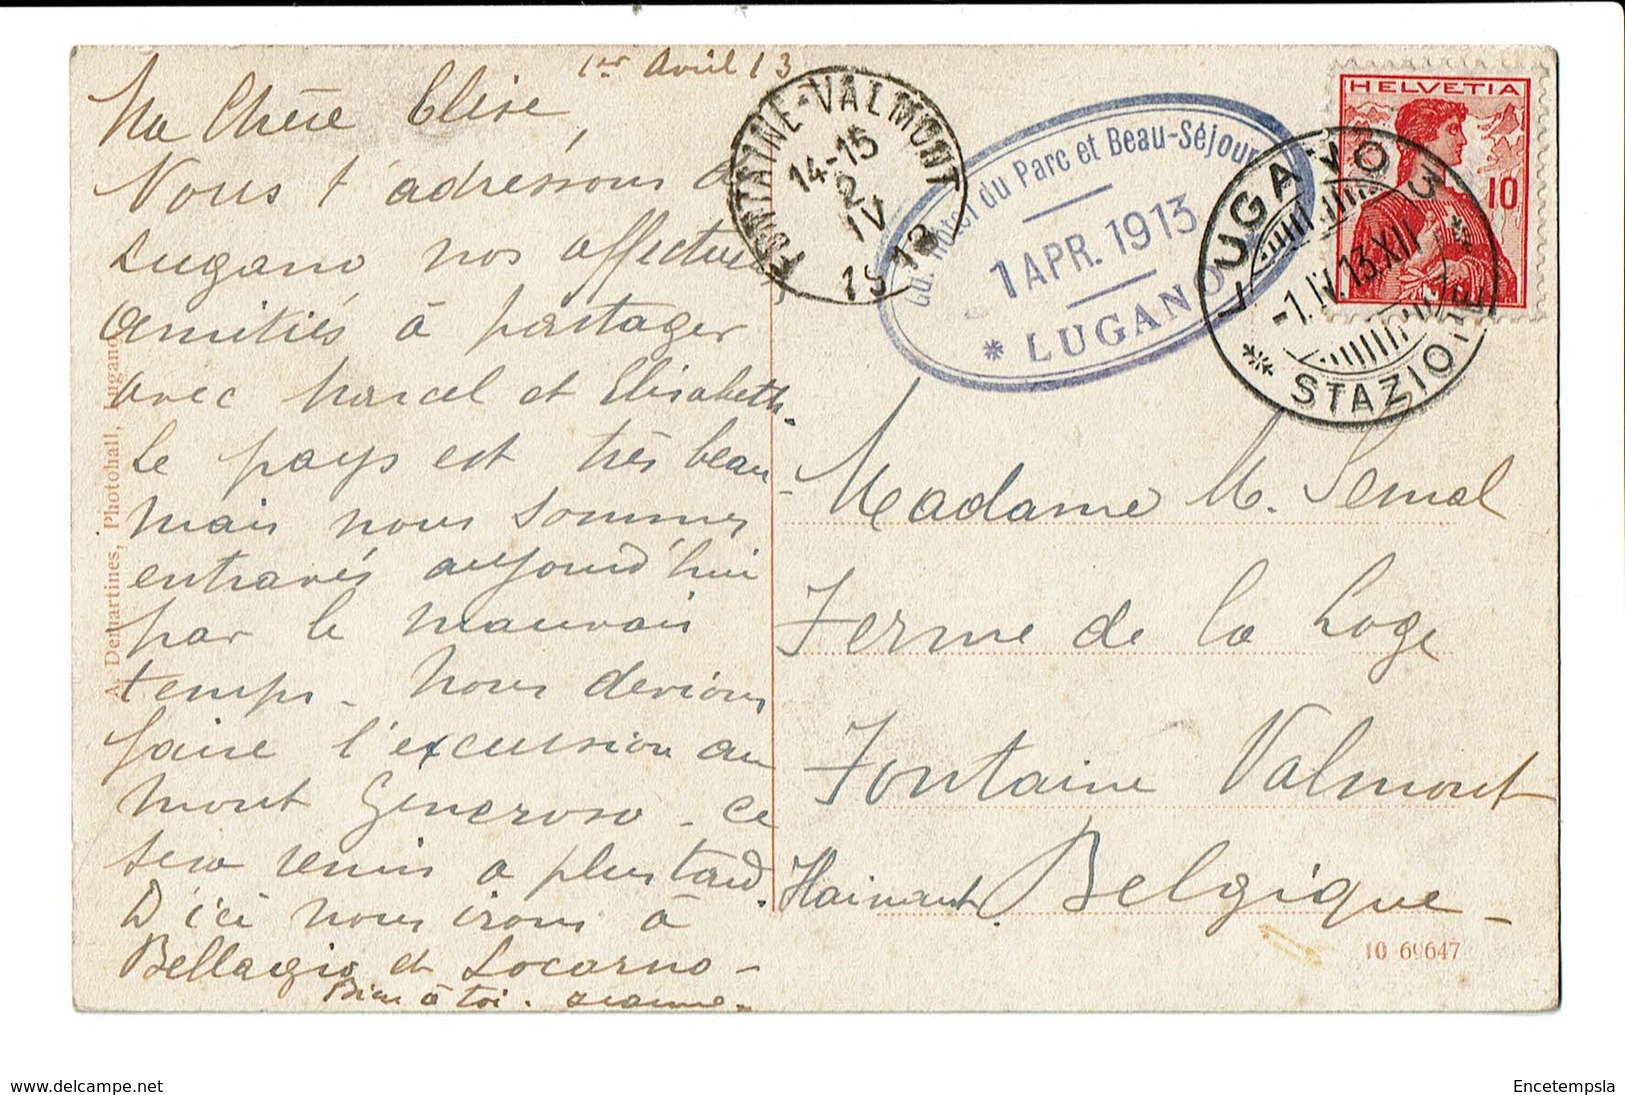 1er Avril 13
Ma Chère Elise,
Nous t'adressons de
Lugano nos affectueuses
amitiés à partager
avec Marcel et Elisabeth.
Le pays est très beau -
mais nous sommes
entravés aujourd'hui
par le mauvais
temps - Nous devions
faire l'excursion au
mont Generoso - ce
sera remis a plus tard.
D'ici nous irons à
Bellagio et Locarno -
Bien à toi. Jeanne -
A. Demartines, Photohall, Lugano
FONTAINE-VALMONT
14-15
2
IV
1913
Gd. Hôtel du Parc et Beau-Séjour
1 APR. 1913
* LUGANO *
HELVETIA
10
LUGANO 3
-1.IV.13.XII
STAZIONE
Madame M. Semal
Ferme de la Loge
Fontaine Valmont
Hainaut. Belgique -
10 69647
www.delcampe.net
Encetempsla